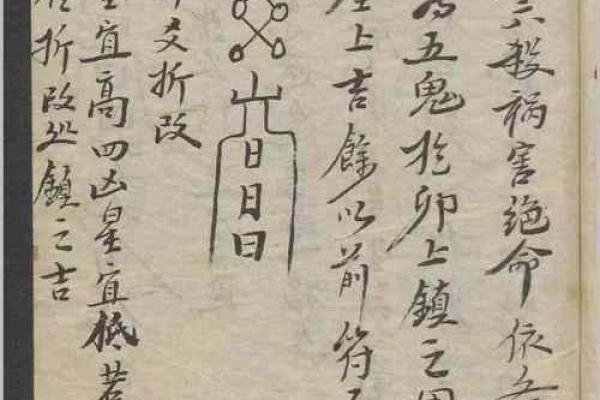 六殺禍害绝命依
為五鬼於卯上鎮之
上吉餘以前符
山
日日日
爻折改
宜高四凶星宜低若
折改处鎮之吉